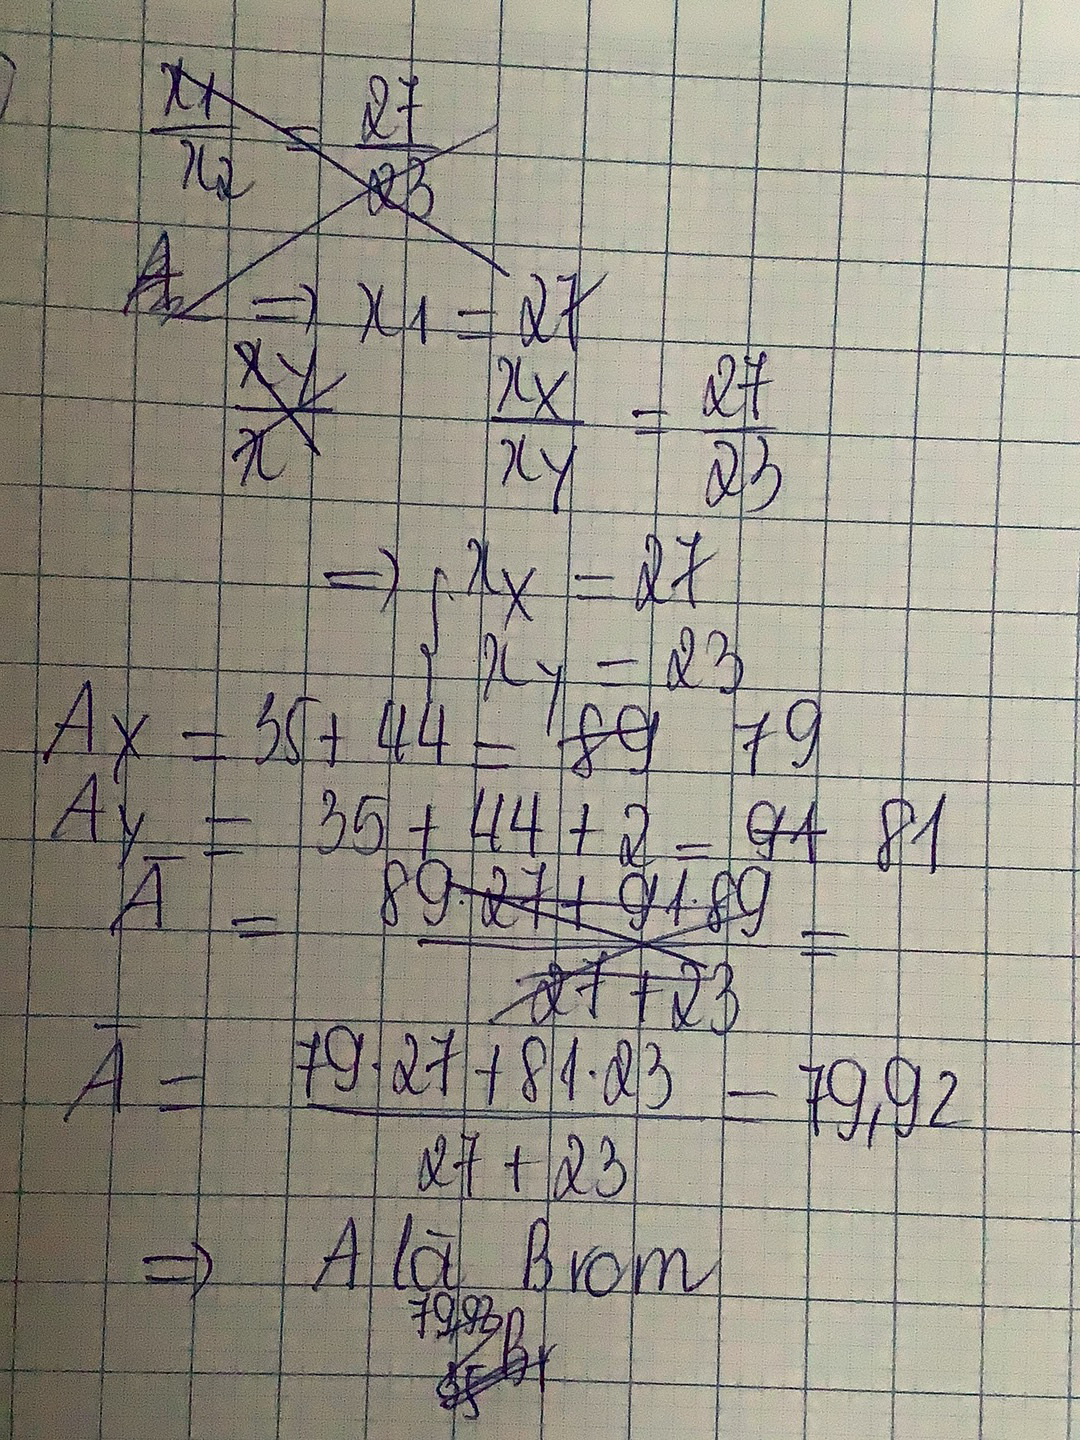 x1/x2 = 27/23
A
=> x1 = 27
xy/x xX/xY = 27/23
=> { xX = 27
xY = 23
AX = 35 + 44 = 89 79
AY = 35 + 44 + 2 = 91 81
Ā = 89.27 + 91.89 / 27 + 23 =
Ā = 79.27 + 81.23 / 27 + 23 = 79,92
=> A là Brom
79,93
Br
35